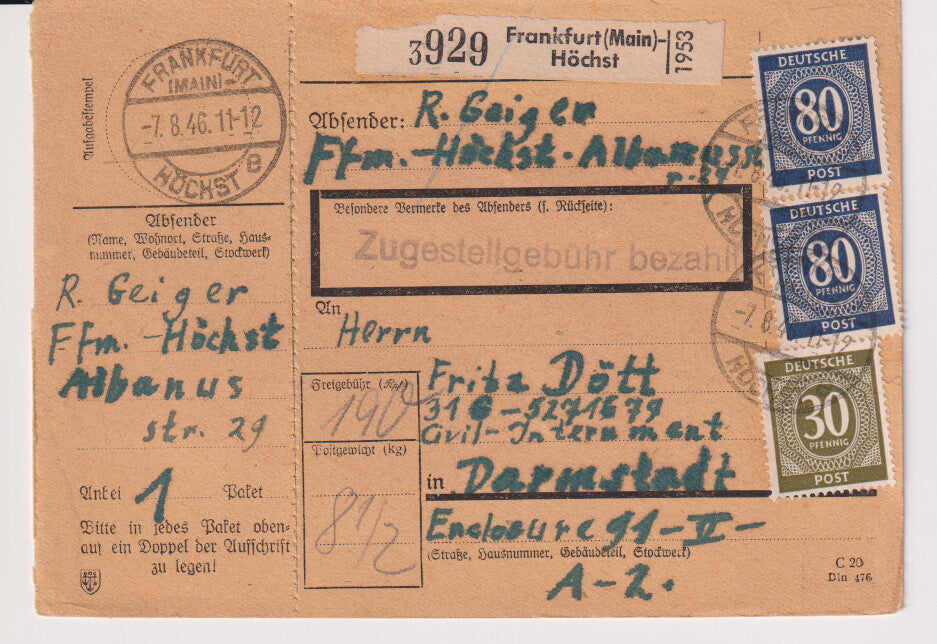 Aufgabestempel
FRANKFURT
(MAIN)-
-7.8.46. 11-12
HÖCHST 8
Absender
(Name, Wohnort, Straße, Haus-
nummer, Gebäudeteil, Stockwerk)
R. Geiger
Ffm.-Höchst
Albanus
str. 29
Anbei 1 Paket
Bitte in jedes Paket oben-
auf ein Doppel der Aufschrift
zu legen!
3929 Frankfurt (Main)-
Höchst
1953
Absender: R. Geiger
Ffm.-Höchst. Albanusst
Besondere Vermerke des Absenders (s. Rückseite):
Zugestellgebühr bezahlt
An
Herrn
Freigebühr (Rpf)
190
Postgewicht (kg)
8 1/2
Fritz Dött
31G-5271679
Civil-Internment
in Darmstadt
Enclosure 91-II-
(Straße, Hausnummer, Gebäudeteil, Stockwerk)
A-2.
C 20
Din 476
DEUTSCHE
80
PFENNIG
POST
DEUTSCHE
80
PFENNIG
POST
-7.8.4
DEUTSCHE
30
PFENNIG
POST